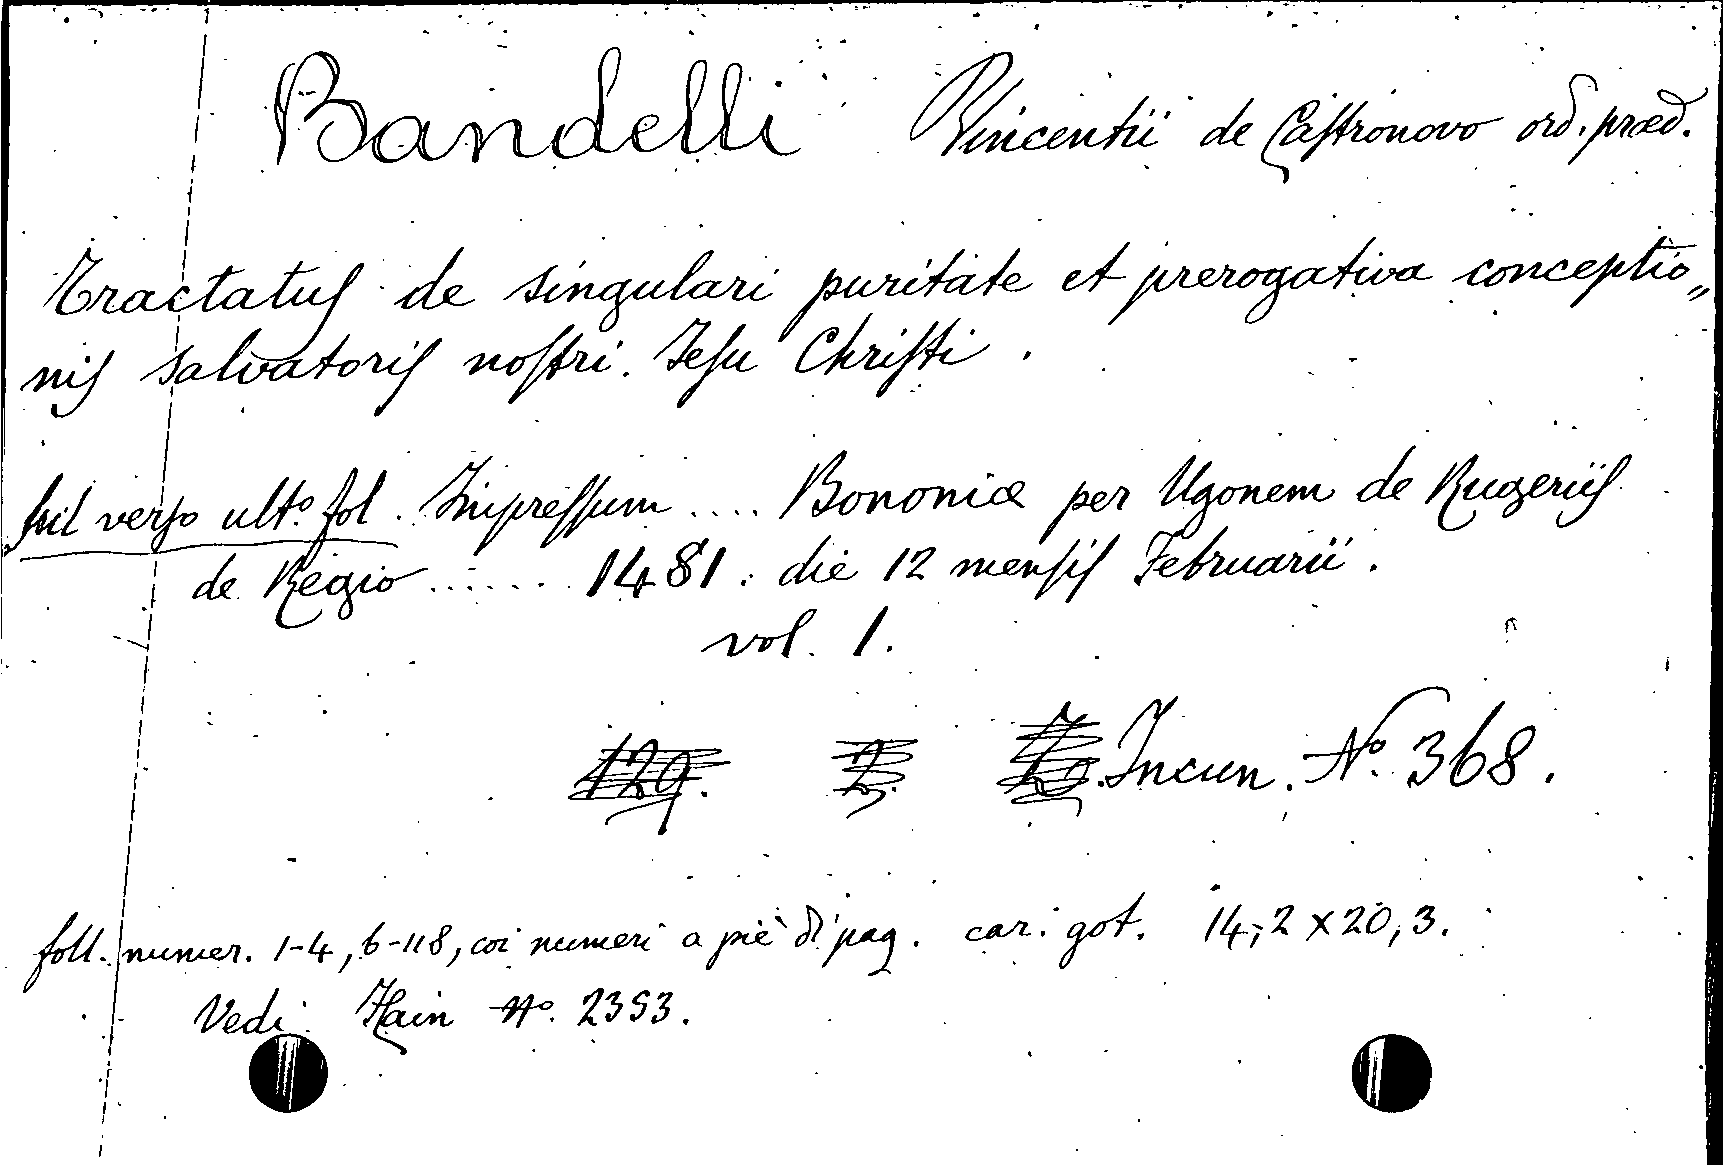 Bandelli Vincentii de Castronovo ord. præd.
Tractatus de singulari puritate et prerogativa conceptio„
nis salvatoris nostri Jesu Christi.
sul verso ult.º fol. Impressum .... Bononiæ per Ugonem de Rugeriis
de Regio ...... 1481. die 12 mensis Februarii.
vol. 1.
129. 2. Incun. Nº. 368.
foll. numer. 1-4, 6-118, coi numeri a piè di pag. car. got. 14,2 x 20,3.
Vedi Hain Nº. 2353.